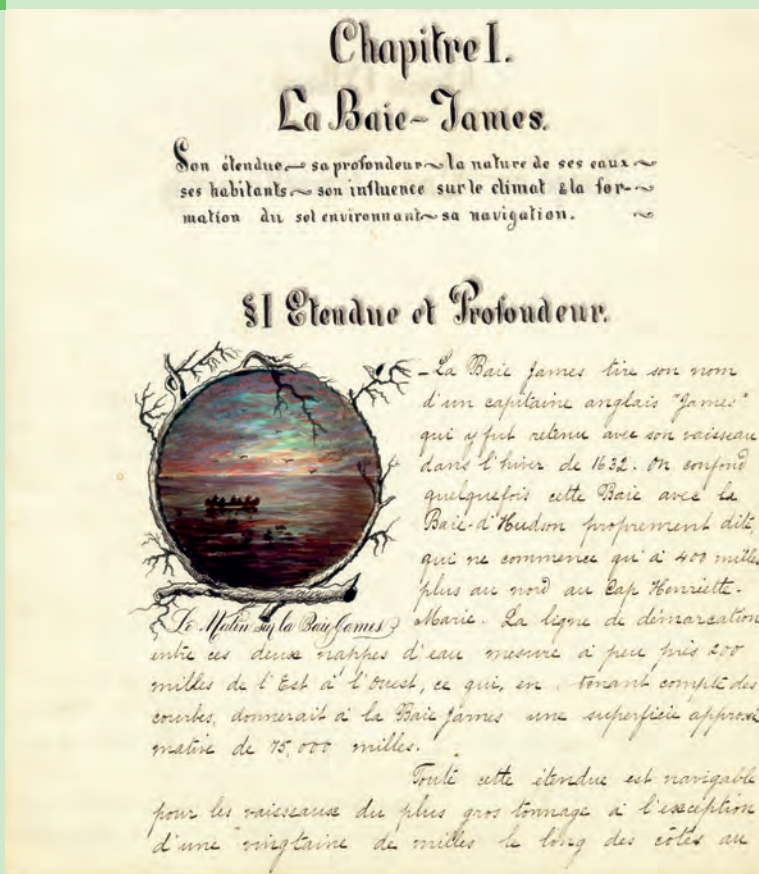 Chapitre I.
La Baie-James.
Son étendue ~ sa profondeur ~ la nature de ses eaux ~
ses habitants ~ son influence sur le climat & la for- ~
mation du sol environnant ~ sa navigation. ~
§ I Etendue et Profondeur.
- La Baie James tire son nom
d'un capitaine anglais "James"
qui y fut retenu avec son vaisseau
dans l'hiver de 1632. On confond
quelquefois cette Baie avec la
Baie-d'Hudson proprement dite,
qui ne commence qu'à 400 milles
plus au nord au Cap Henriette-
Marie. La ligne de démarcation
Le Matin sur la Baie James
entre ces deux nappes d'eau mesure à peu près 200
milles de l'Est à l'Ouest, ce qui, en tenant compte des
courbes, donnerait à la Baie James une superficie approxi
mative de 75,000 milles.
Toute cette étendue est navigable
pour les vaisseaux du plus gros tonnage à l'exception
d'une vingtaine de milles le long des côtés au